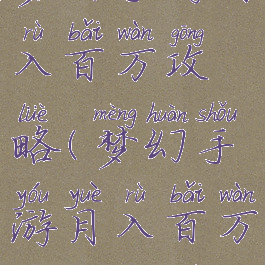 rù bǎi wàn gōng
入百万攻
lüè mèng huàn shǒu
略(梦幻手
yóu yuè rù bǎi wàn
游月入百万